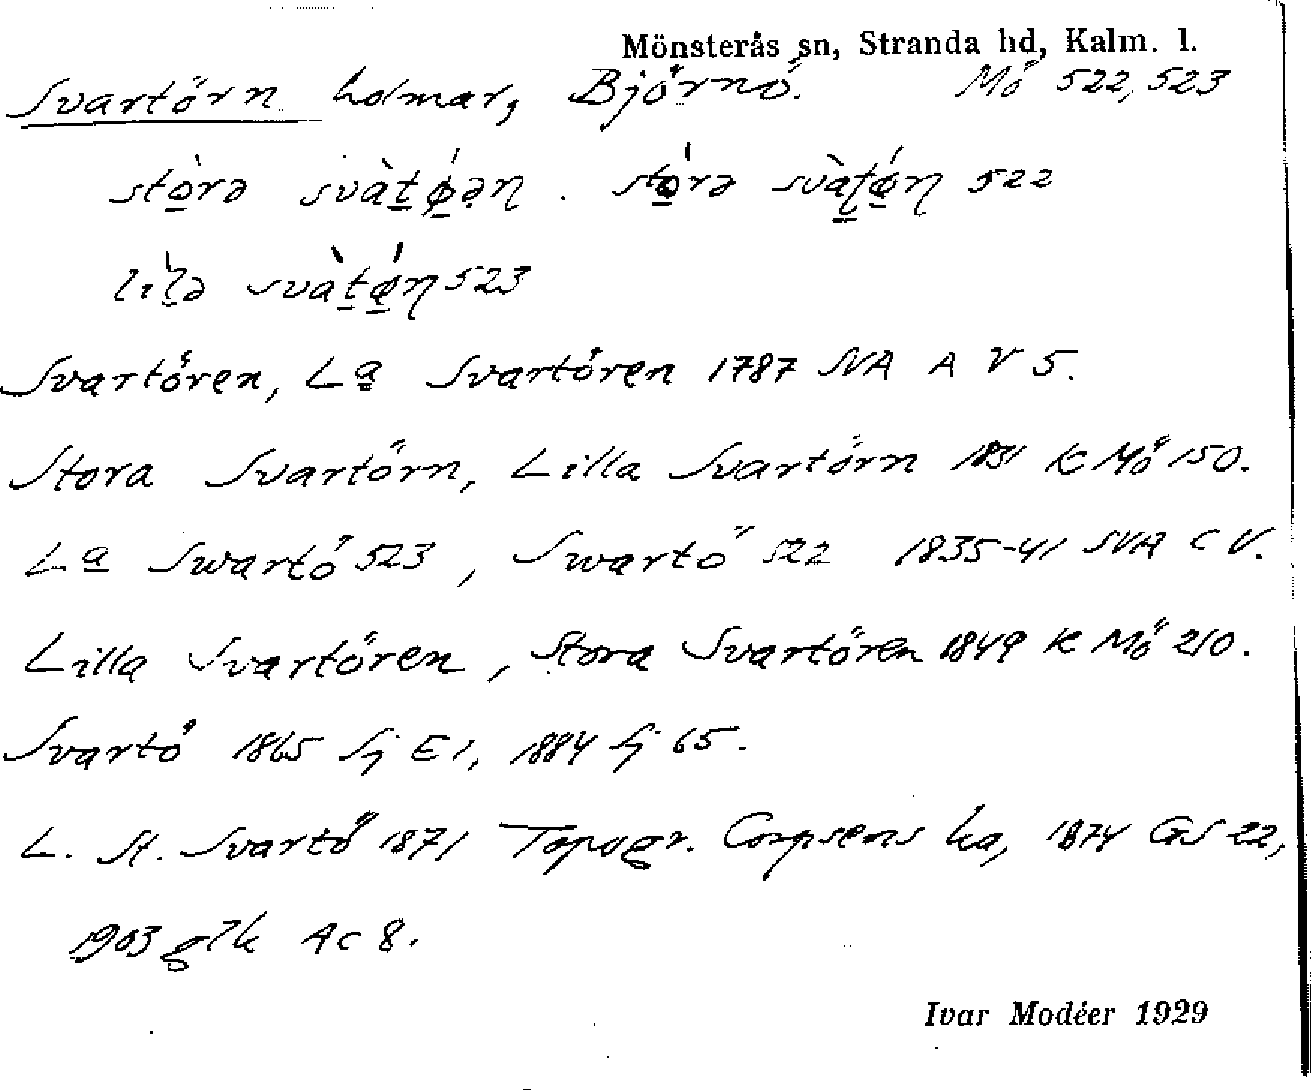 Mönsterås sn, Stranda hd, Kalm. l.
Svartörn holmar, Björnö. Mö 522, 523
stò̲rə svàt̲ǿ̲əɳ . stò̲rə svàt̲ǿ̲ɳ 522
lìlə svàt̲ǿ̲ɳ 523
Svartören, La Svartören 1787 SVA A V 5.
Stora Svartörn, Lilla Svartörn 1831 K Mö 150.
La Swartö 523, Swartö 522 1835-41 SVA C V.
Lilla Svartören, Stora Svartören 1849 K Mö 210.
Svartö 1865 Sj E 1, 1884 Sj 65.
L. St. Svartö 1871 Topogr. Corpsens ka, 1874 GS 22,
1903 glk Ac 8.
Ivar Modéer 1929